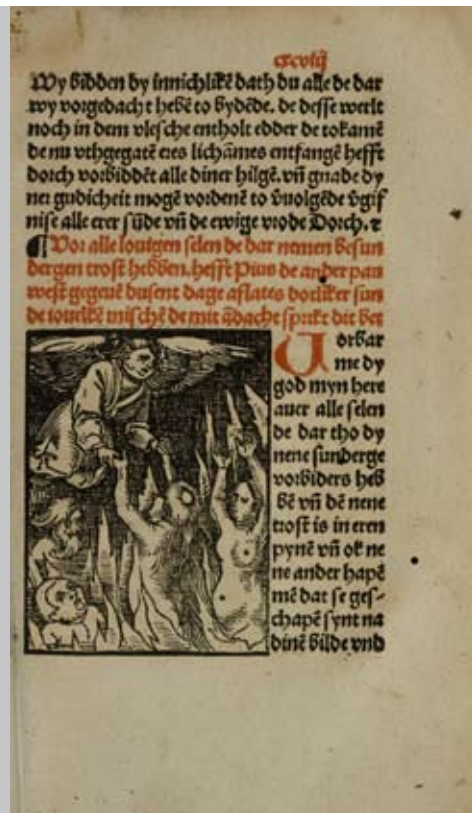 Wy bidden dy innichlikē dath du alle de dar
wy vorgedacht hebē to bydēde. de desse werlt
noch in dem vlesche entholt edder de tokamē
de nu vthgegatē eres lichāmes entfangē hefft
dorch vorbiddēt alle diner hilgē. vn̄ gnade dy
ner gudicheit mogē vordenē to v̄uolgēde v̄gif
nise alle erer sūde vn̄ de ewige vrode Dorch. ꝛ
¶ Vor alle louigen selen de dar nemen besun
dergen trost hebben. hefft Pius de ander paw
west gegeuē dusent dage aflates dotliker sun
de iouelkē mischē de mit ādacht sprikt dit bet
Vorbar
me dy
god myn here
auer alle selen
de dar tho dy
nene sunderge
vorbiders heb
bē vn̄ dē nene
trost is in eren
pynē vn̄ ok ne
ne ander hapē
mē dat se ges-
chapē synt na
dinē bilde vnd